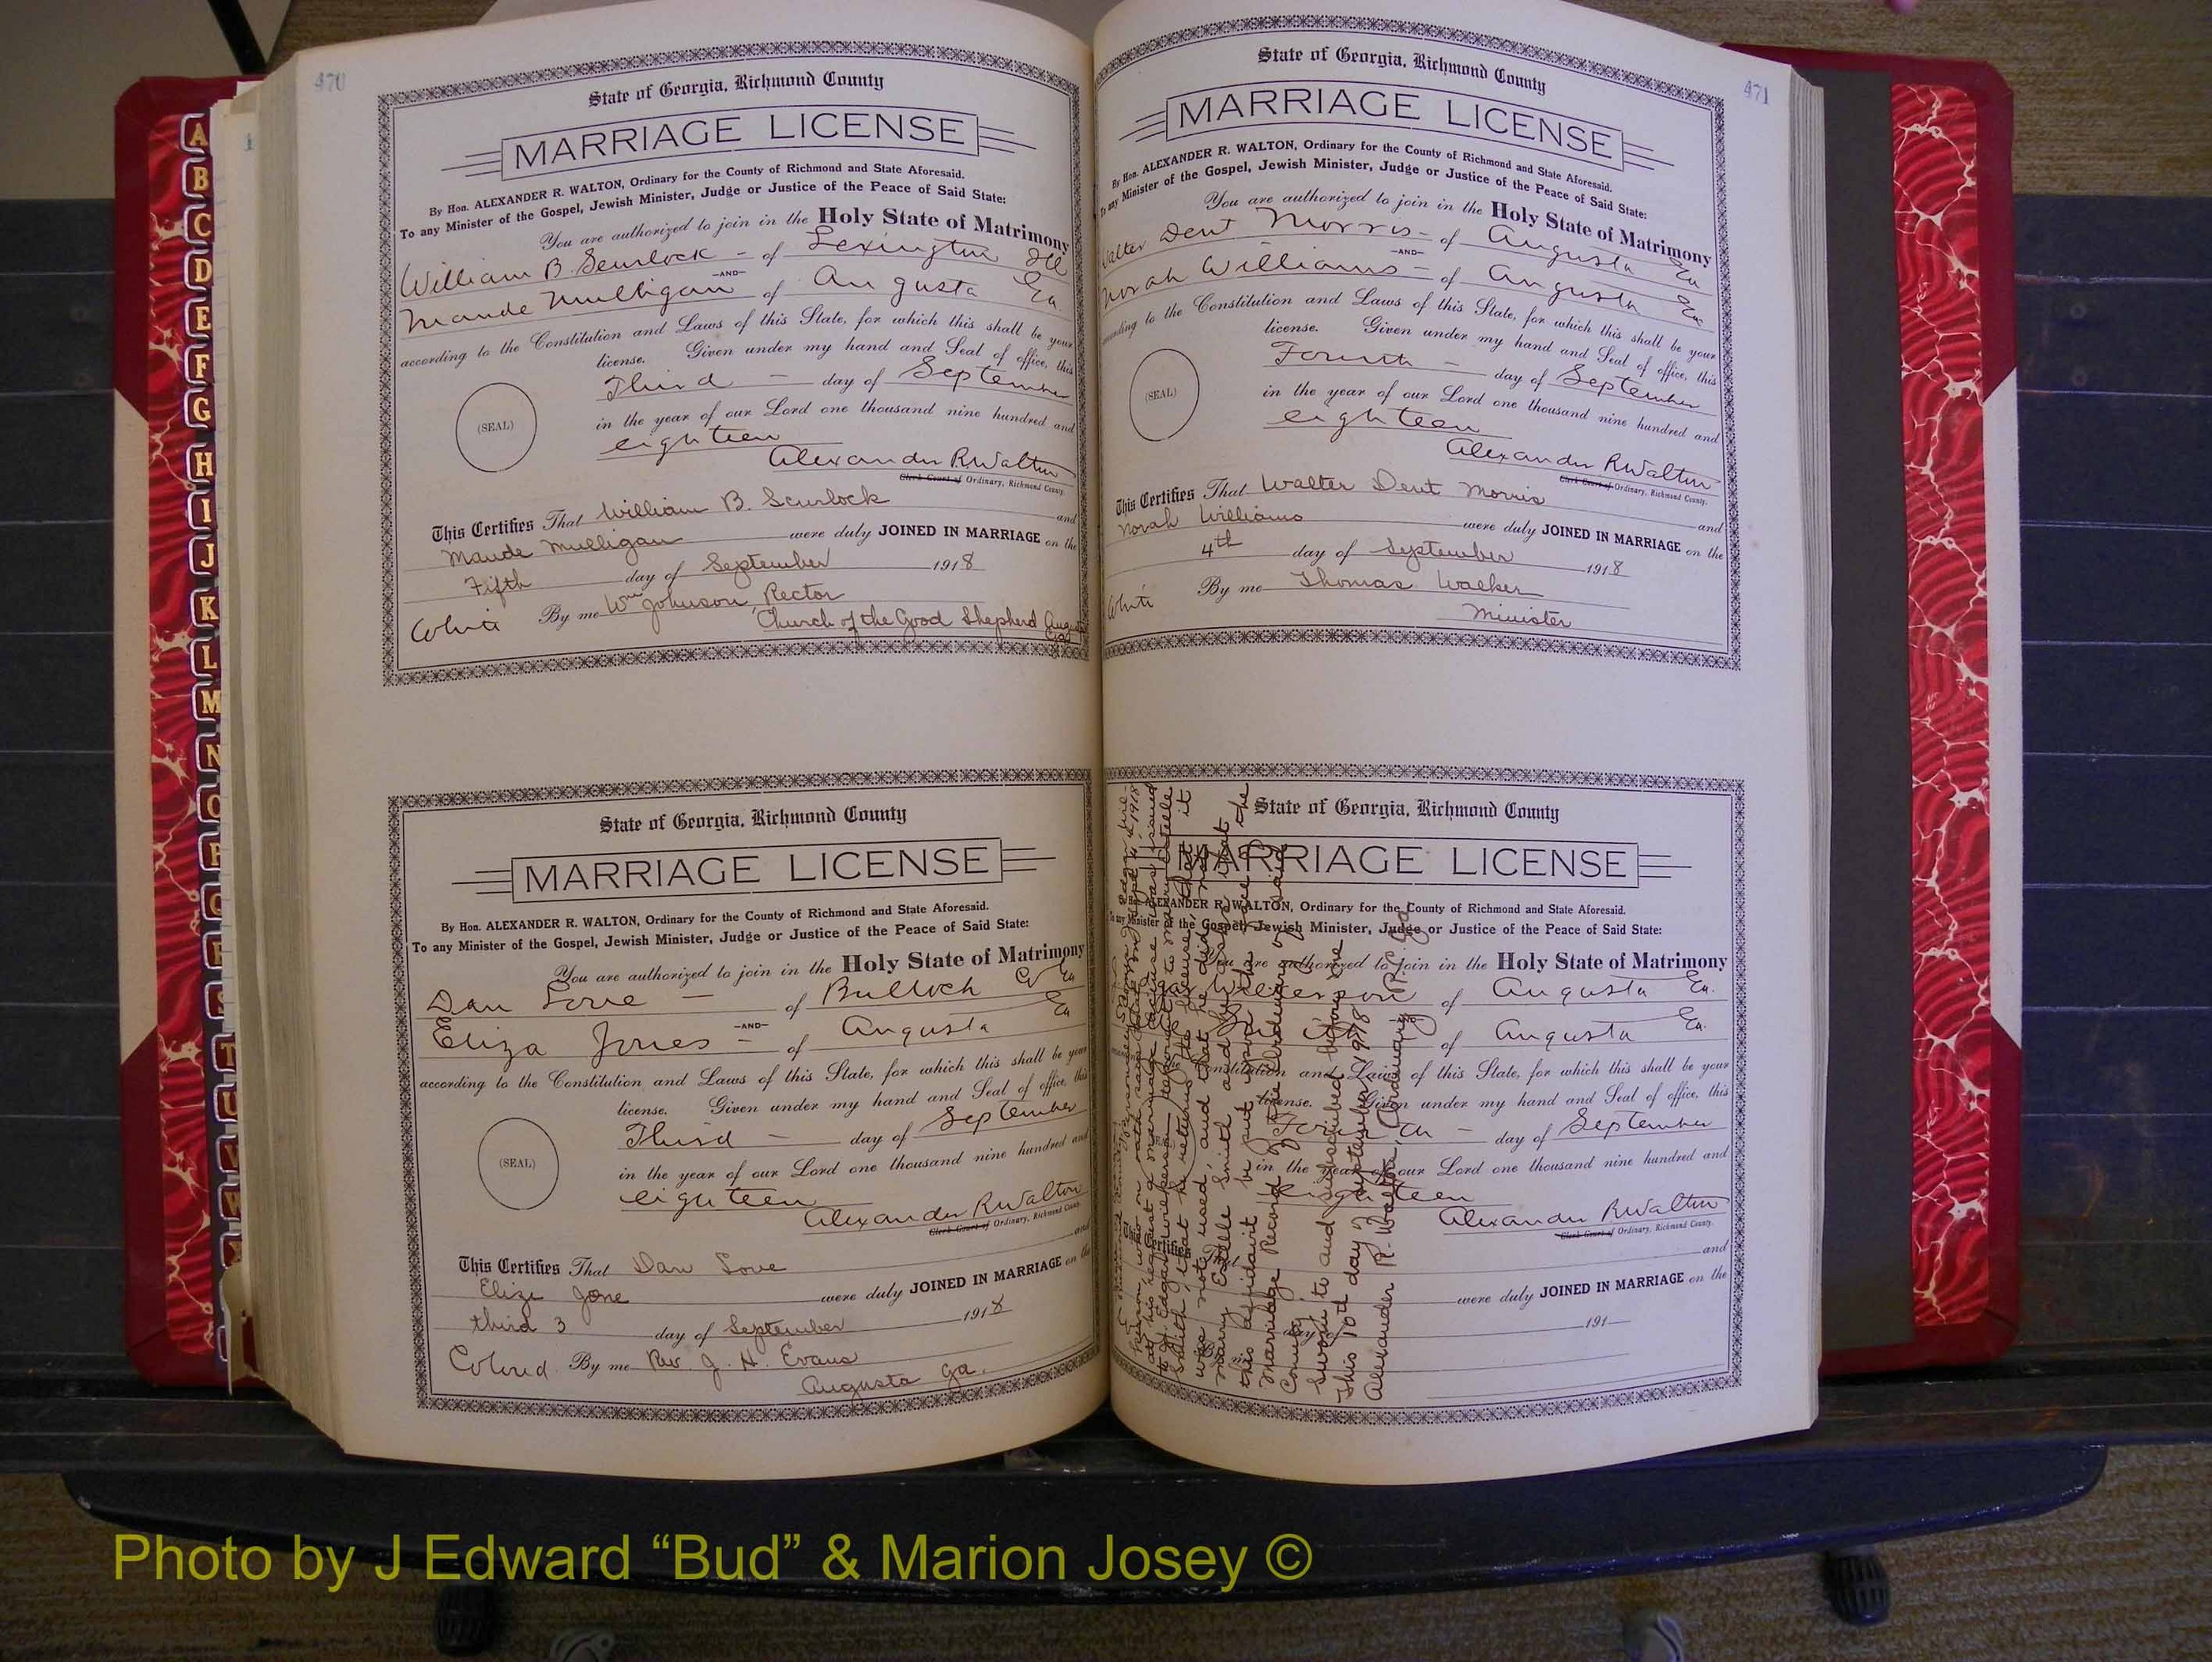 470
State of Georgia, Richmond County
MARRIAGE LICENSE
By Hon. ALEXANDER R. WALTON, Ordinary for the County of Richmond and State Aforesaid.
To any Minister of the Gospel, Jewish Minister, Judge or Justice of the Peace of Said State:
You are authorized to join in the Holy State of Matrimony
William B. Scurlock - of Lexington
-AND-
Maude Mulligan of Augusta Ga.
according to the Constitution and Laws of this State, for which this shall be your
license. Given under my hand and Seal of office, this
Third - day of September
(SEAL)
in the year of our Lord one thousand nine hundred and
eighteen
Alexander R Walton
Clerk Court of Ordinary, Richmond County.
This Certifies That William B. Scurlock and
Maude Mulligan were duly JOINED IN MARRIAGE on the
Fifth day of September 1918
White By me Wm Johnson, Rector
Church of the Good Shepherd Augusta
Ga
State of Georgia, Richmond County
MARRIAGE LICENSE
By Hon. ALEXANDER R. WALTON, Ordinary for the County of Richmond and State Aforesaid.
To any Minister of the Gospel, Jewish Minister, Judge or Justice of the Peace of Said State:
You are authorized to join in the Holy State of Matrimony
Dan Love - of Bulloch Co Ga
-AND-
Eliza Jones - of Augusta Ga
according to the Constitution and Laws of this State, for which this shall be your
license. Given under my hand and Seal of office, this
Third - day of September
(SEAL)
in the year of our Lord one thousand nine hundred and
eighteen
Alexander R Walton
Clerk Court of Ordinary, Richmond County.
This Certifies That Dan Love and
Eliza Jone were duly JOINED IN MARRIAGE on the
third 3 day of September 1918
Colored By me Rev. J. H. Evans
Augusta Ga.
471
State of Georgia, Richmond County
MARRIAGE LICENSE
By Hon. ALEXANDER R. WALTON, Ordinary for the County of Richmond and State Aforesaid.
To any Minister of the Gospel, Jewish Minister, Judge or Justice of the Peace of Said State:
You are authorized to join in the Holy State of Matrimony
Walter Dent Morris - of Augusta Ga
-AND-
Norah Williams - of Augusta Ga
according to the Constitution and Laws of this State, for which this shall be your
license. Given under my hand and Seal of office, this
Fourth - day of September
(SEAL)
in the year of our Lord one thousand nine hundred and
eighteen
Alexander R Walton
Clerk Court of Ordinary, Richmond County.
This Certifies That Walter Dent Morris and
Norah Williams were duly JOINED IN MARRIAGE on the
4th day of September 1918
White By me Thomas Walker
Minister
State of Georgia, Richmond County
MARRIAGE LICENSE
By Hon. ALEXANDER R. WALTON, Ordinary for the County of Richmond and State Aforesaid.
To any Minister of the Gospel, Jewish Minister, Judge or Justice of the Peace of Said State:
You are authorized to join in the Holy State of Matrimony
of Augusta Ga.
of Augusta Ga.
Constitution and Laws of this State, for which this shall be your
license. Given under my hand and Seal of office, this
Fourth - day of September
in the year of our Lord one thousand nine hundred and
eighteen
Alexander R Walton
Clerk Court of Ordinary, Richmond County.
This Certifies That and
were duly JOINED IN MARRIAGE on the
day of 191
was not used, and that he did not
marry Estelle Smith and he asks that
this affidavit be put upon the
Marriage Record of the Ordinary of said
County.
Sworn to and subscribed before me
this 10th day of September 1918
Alexander R. Walton, Ordinary R.C. Ga
A
B
C
D
E
F
G
H
I
J
K
L
M
N
O
P
Q
R
S
T
U
V
W
Photo by J Edward “Bud” & Marion Josey ©